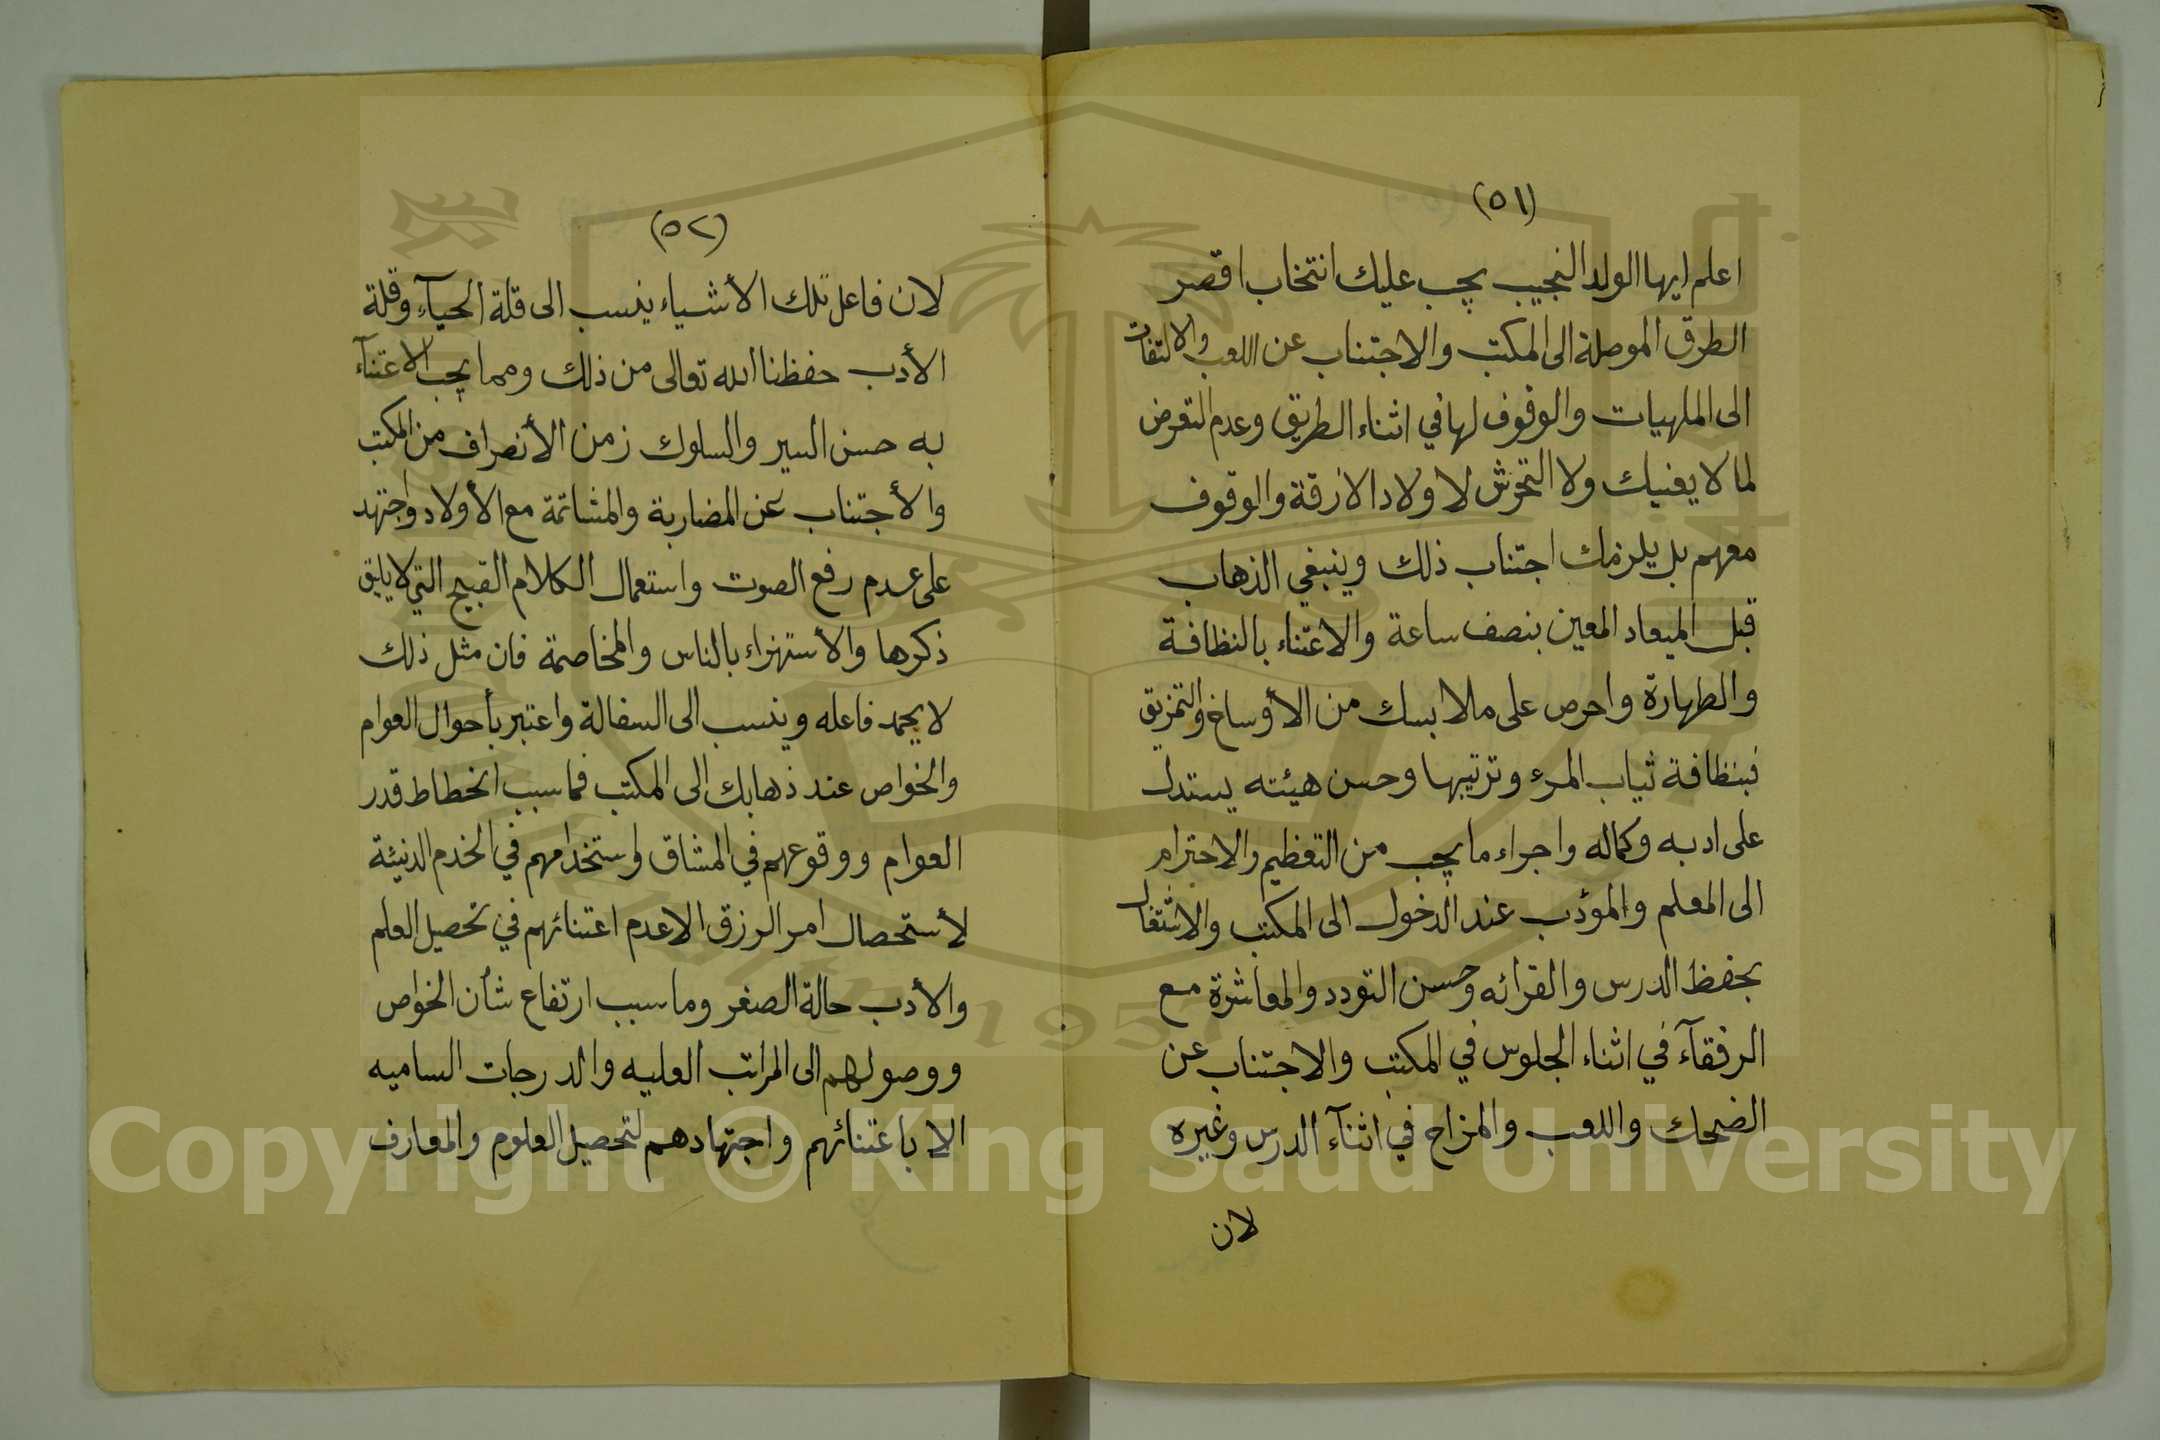 (٥١)
اعلم ايها الولد النجيب يجب عليك انتخاب اقصر
الطرق الموصلة الى المكتب والاجتناب عن اللعب والالتفات
الى الملهيات والوقوف لها في اثناء الطريق وعدم التعرض
لما لا يعنيك ولا التحرش لاولاد الازقة والوقوف
معهم بل يلزمك اجتناب ذلك وينبغي الذهاب
قبل الميعاد المعين بنصف ساعة والاعتناء بالنظافة
والطهارة واحرص على ملابسك من الأوساخ والتمزيق
فبنظافة ثياب المرء وترتيبها وحسن هيئته يستدل
على ادبه وكماله واجراء ما يجب من التعظيم والاحترام
الى المعلم والمؤدب عند الدخول الى المكتب والاشتغال
بحفظ الدرس والقرائه وحسن التودد والمعاشرة مع
الرفقآء في اثناء الجلوس في المكتب والاجتناب عن
الضحك واللعب والمزاح في اثنآء الدرس وغيره
لان
(٥٢)
لان فاعل تلك الأشياء ينسب الى قلة الحيآء وقلة
الأدب حفظنا الله تعالى من ذلك ومما يجب الاعتنآء
به حسن السير والسلوك زمن الأنصراف من المكتب
والأجتناب عن المضاربة والمشاتمة مع الأولاد واجتهد
على عدم رفع الصوت واستعمال الكلام القبيح التي لا يليق
ذكرها والأستهزاء بالناس والمخاصمة فان مثل ذلك
لا يحمد فاعله وينسب الى السفالة واعتبر بأحوال العوام
والخواص عند ذهابك الى المكتب فما سبب انحطاط قدر
العوام ووقوعهم في المشاق واستخدامهم في الخدم الدنيئة
لأستحصال امر الرزق الا عدم اعتنائهم في تحصيل العلم
والأدب حالة الصغر وما سبب ارتفاع شأن الخواص
ووصولهم الى المراتب العليه والدرجات الساميه
الا باعتنائهم واجتهادهم لتحصيل العلوم والمعارف
Copyright © King Saud University
1957